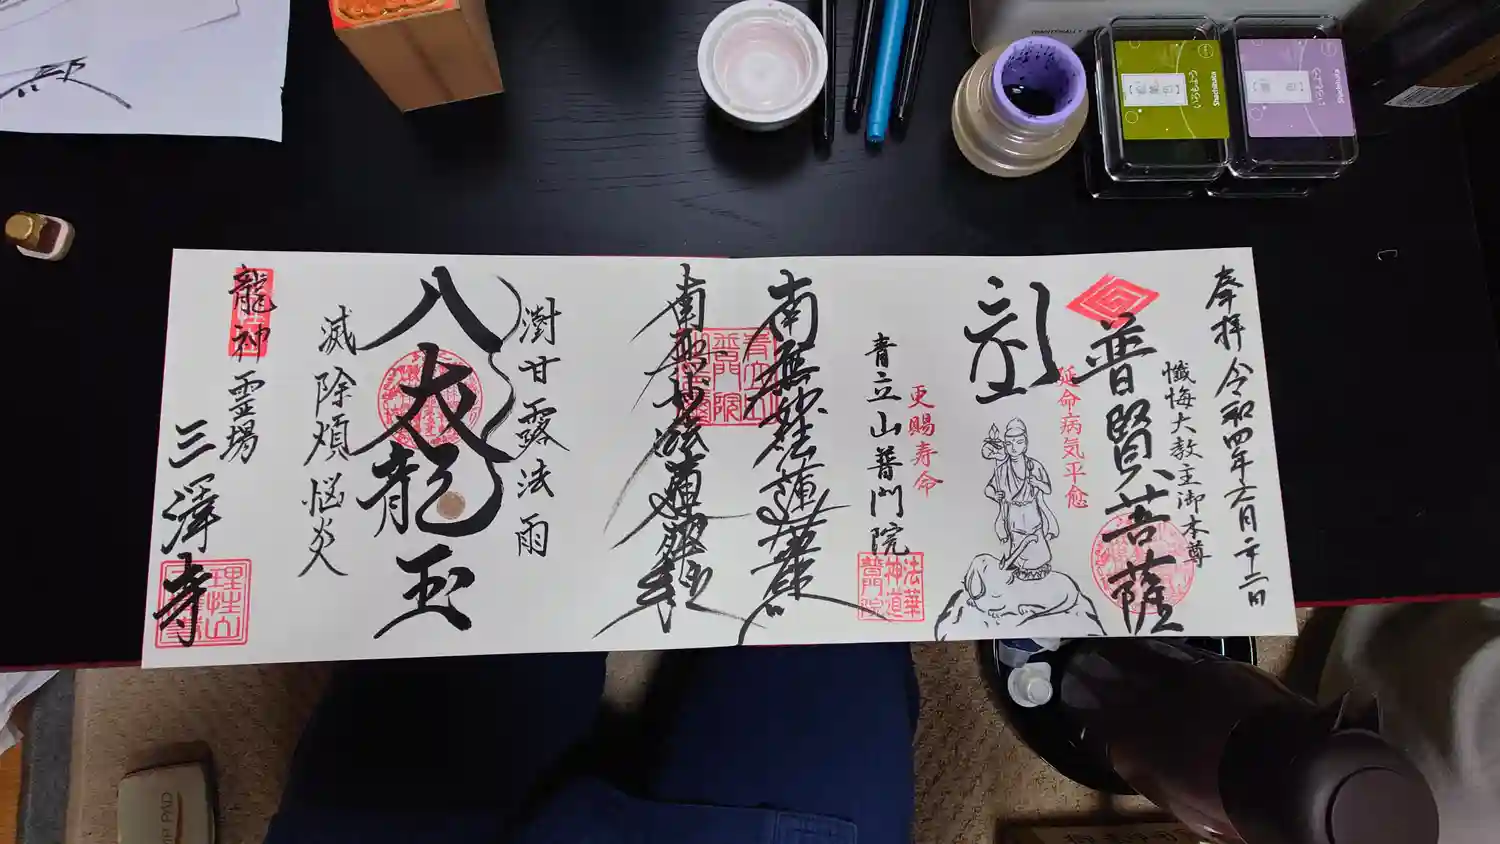 奉拝 令和四年六月二十二日
懺悔大教主御本尊
普賢菩薩
延命病気平愈
更賜寿命
青立山普門院
法華
神道
普門院
南無妙法蓮華経
南無妙法蓮華経
澍甘露法雨
八大龍王
滅除煩悩炎
龍神霊場
三澤寺
いろもよう
Shachihata
いろもよう
Shachihata